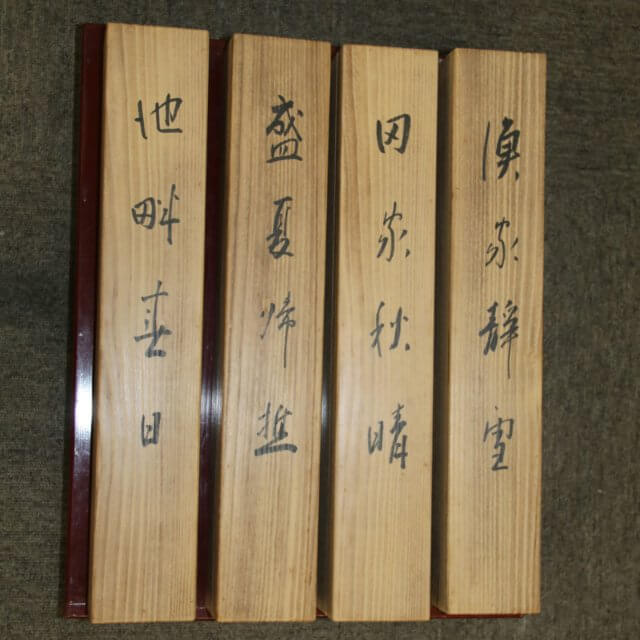 池畔春日
盛夏帰樵
田家秋晴
漁家静雪